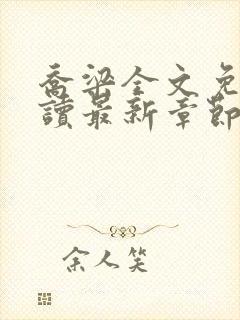 喬梁全文免
讀最新章節
余人笑